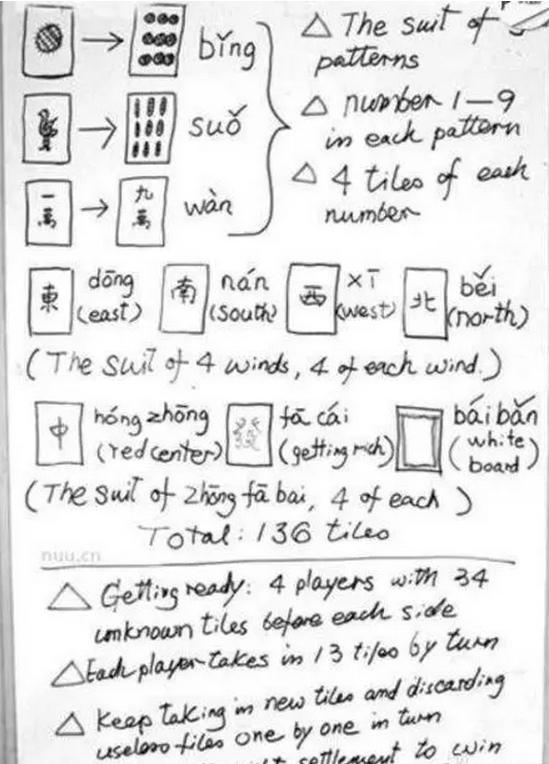 → bǐng
The suit of
patterns
→ suǒ
number 1—9
in each pattern
一萬 → 九萬 wàn
4 tiles of each
number
東 dōng (east) 南 nán (south) 西 xī (west) 北 běi (north)
(The suit of 4 winds, 4 of each wind.)
中 hóng zhōng (red center) 發 fā cái (getting rich) bái bǎn (white board)
(The suit of zhōng fā bai, 4 of each)
Total: 136 tiles
nuu.cn
Getting ready: 4 players with 34
unknown tiles before each side
Each player takes in 13 tiles by turn
Keep taking in new tiles and discarding
useless tiles one by one in turn
settlement to win